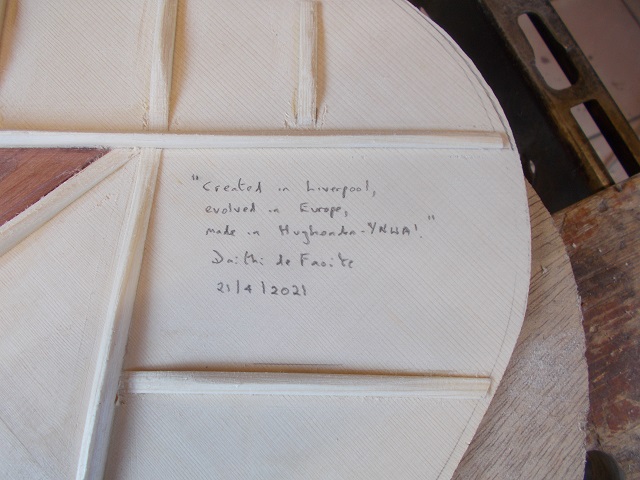 "Created in Liverpool,
evolved in Europe,
made in Hughenden-YNWA!"
Daithi de Faoite
21/4/2021